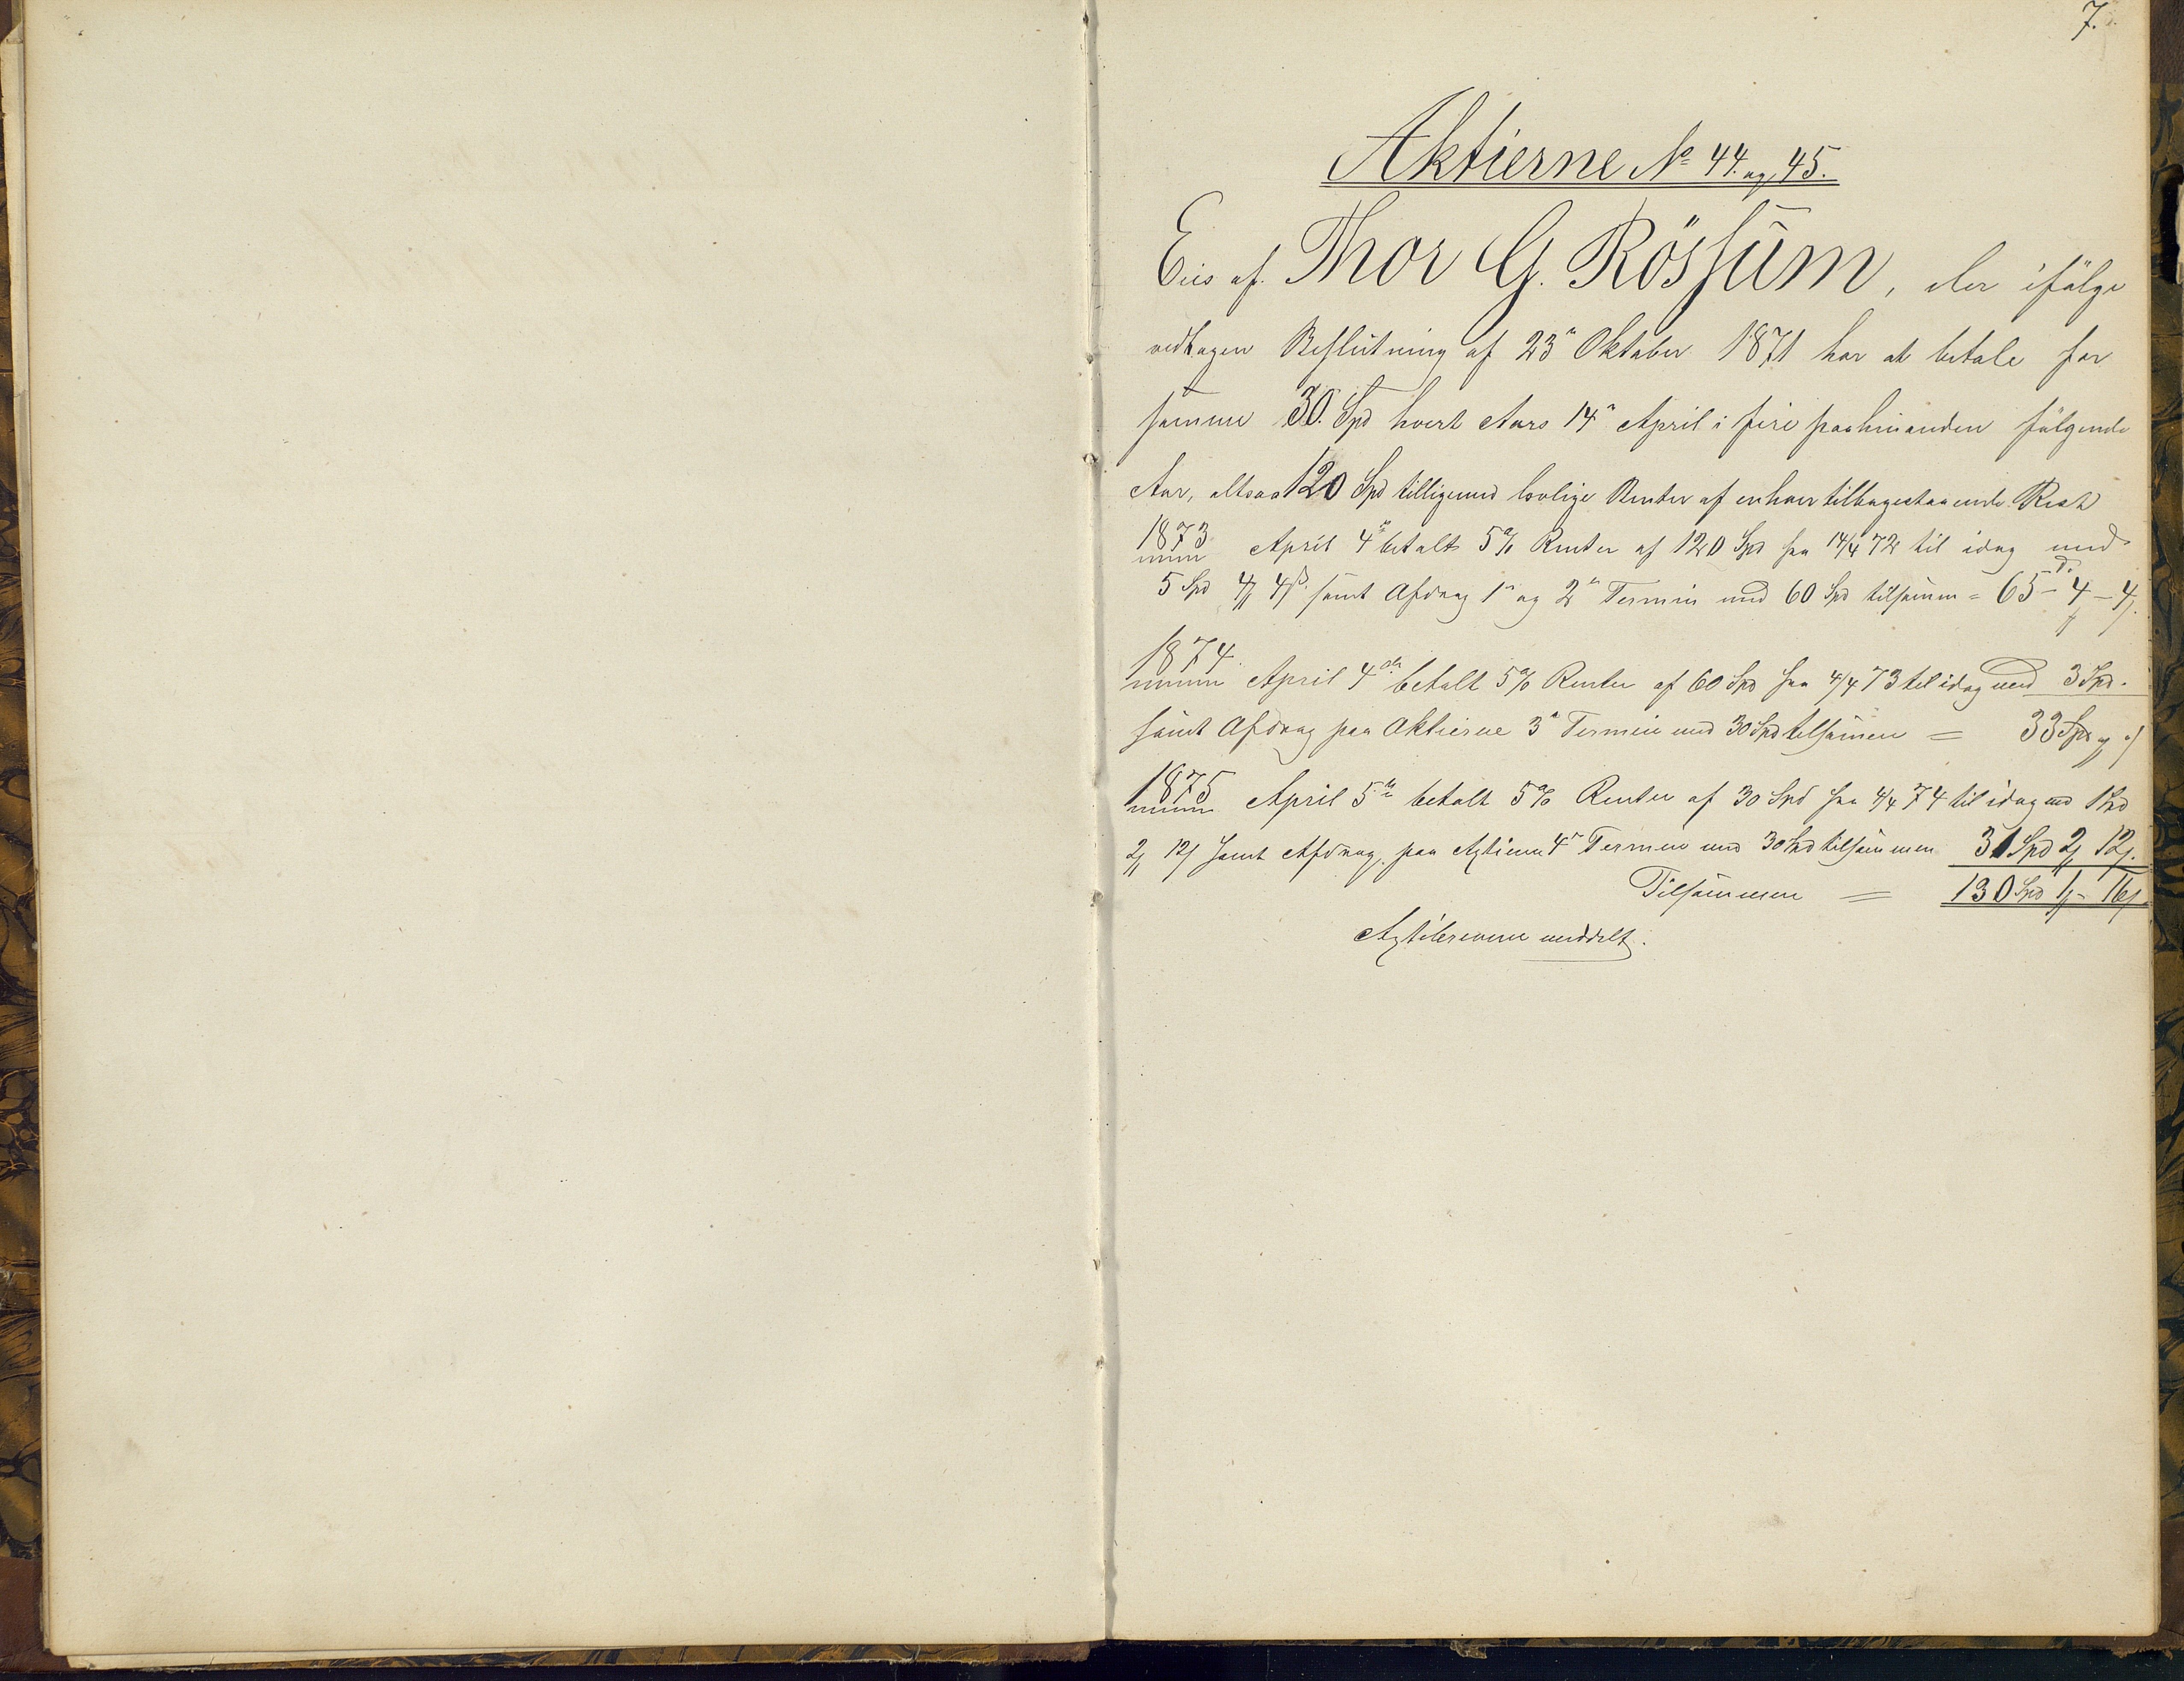 7.
Aktierne No 44. og 45.
Eies af Thor G. Rössüm, der ifölge
vedtagen Beslutning af 23n Oktober 1871 har at betale for
samme 30. Spd hvert Aars 14n April i fire paahinanden fölgende
Aar, altsaa 120 Spd tilligemed lovlige Renter af enhver tilbagestaaende Rest
1873 April 4n betalt 5% Renter af 120 Spd fra 14/4 72 til idag med
5 Spd 4 4ß samt Afdrag 1n og 2n Termin med 60 Spd tilsammen = 65 - 4 - 4
1874. April 4de betalt 5% Renter af 60 Spd fra 4/4 73 til idag med 3 Spd.
samt Afdrag paa Aktierne 3n Termin med 30 Spd tilsamen = 33 Spd
1875 April 5te betalt 5% Renter af 30 Spd fra 4/4 74 til idag med 1 Spd
2 12 samt Afdrag paa Agtierne 4n Termin med 30 Spd tilsammen 31 Spd 2 12
Tilsammen = 130 Spd 1 - 16
meddelt.